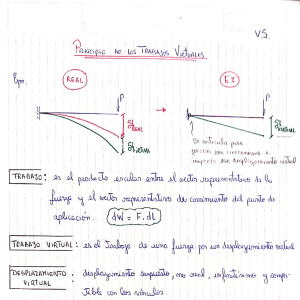 V.S.
PRINCIPIO DE LOS TRABAJOS VIRTUALES.
Ejm. REAL EI
P P
δL REAL
δL VIRTUAL
δL VIRTUAL
Se articula para
TRABAJO: es el producto escalar entre el vector representativo de la
fuerza y el vector representativo de corrimiento del punto de
aplicación. dW = F.dL
TRABAJO VIRTUAL: es el trabajo de una fuerza por un desplazamiento virtual
DESPLAZAMIENTO VIRTUAL : desplazamiento supuesto, no real, infinitésimo y compa-
tible con los vínculos.